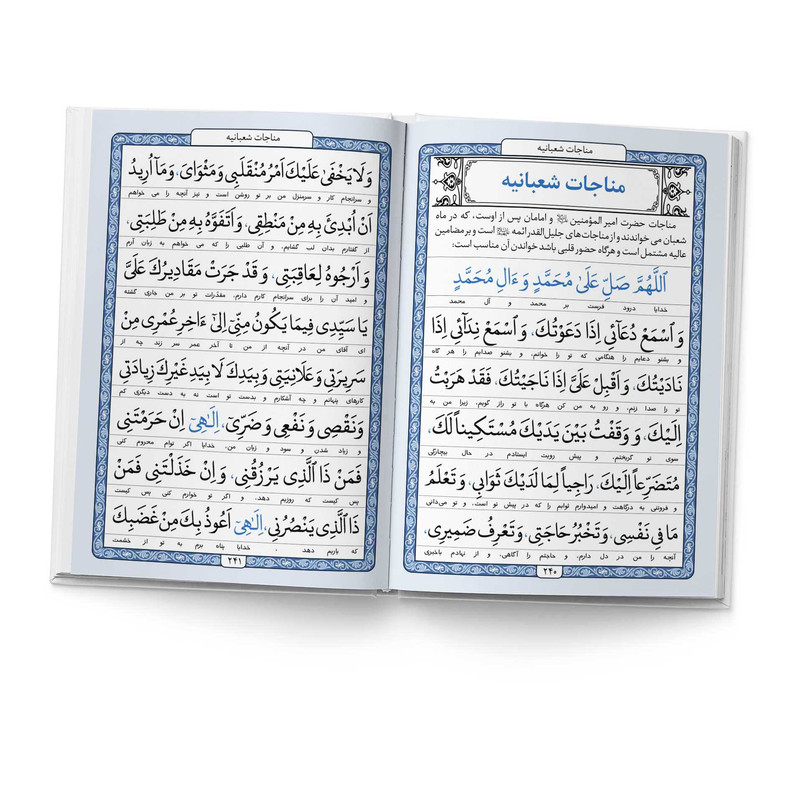 مناجات شعبانیه
مناجات شعبانیه
مناجات حضرت امیرالمؤمنین ﷺ و امامان پس از اوست، که در ماه
شعبان می خواندند و از مناجات‌های جلیل‌القدر ائمه ﷺ است و بر مضامین
عالیه مشتمل است و هرگاه حضور قلبی باشد خواندن آن مناسب است:
اَللّٰهُمَّ صَلِّ عَلىٰ مُحَمَّدٍ وَ ءَالِ مُحَمَّدٍ
خدایا درود فرست بر محمد و آل محمد
وَ اسْمَعْ دُعَآئِي اِذَا دَعَوْتُكَ، وَ اسْمَعْ نِدَآئِي اِذَا
و بشنو دعایم را هنگامی که تو را خوانم، و بشنو صدایم را هر گاه
نَادَيْتُكَ، وَ اَقْبِلْ عَلَيَّ اِذَا نَاجَيْتُكَ، فَقَدْ هَرَبْتُ
تو را صدا زنم، و رو به من کن هرگاه با تو راز گویم، زیرا من به
اِلَيْكَ، وَ وَقَفْتُ بَيْنَ يَدَيْكَ مُسْتَكِيناً لَكَ،
سوی تو گریختم، و پیش رویت ایستادم در حال بیچارگی
مُتَضَرِّعاً اِلَيْكَ، رَاجِياً لِمَا لَدَيْكَ ثَوَابِي، وَ تَعْلَمُ
و فروتنی به درگاهت و امیدوارم ثوابم را که در پیش تو است، و تو می‌دانی
مَا فِي نَفْسِي، وَ تَخْبُرُ حَاجَتِي، وَ تَعْرِفُ ضَمِيرِي،
آنچه را من در دل دارم، و حاجتم را آگاهی، و از نهادم باخبری
۲۴۰
مناجات شعبانیه
وَ لَا يَخْفىٰ عَلَيْكَ اَمْرُ مُنْقَلَبِي وَ مَثْوَايَ، وَ مَا اُرِيدُ
و سرانجام کار و سرمنزل من بر تو روشن است و نیز آنچه را می خواهم
اَنْ اُبْدِئَ بِهِ مِنْ مَنْطِقِي، وَ اَتَفَوَّهُ بِهِ مِنْ طَلِبَتِي،
از گفتارم بدان لب گشایم، و آن طلبی را که می خواهم به زبان آرم
وَ اَرْجُوهُ لِعَاقِبَتِي، وَ قَدْ جَرَتْ مَقَادِيرُكَ عَلَيَّ
و امید آن را برای سرانجام کارم دارم، مقدرات تو بر من جاری گشته
يَا سَيِّدِي فِيمَا يَكُونُ مِنِّي اِلىٰ ءَاخِرِ عُمْرِي مِنْ
ای آقای من در آنچه از من تا آخر عمر سر زند چه از
سَرِيرَتِي وَ عَلَانِيَتِي وَ بِيَدِكَ لَا بِيَدِ غَيْرِكَ زِيَادَتِي
کارهای پنهانم و چه آشکارم و بدست تو است نه به دست دیگری کم
وَ نَقْصِي وَ نَفْعِي وَ ضَرِّي، اِلٰهِي اِنْ حَرَمْتَنِي
و زیاد شدن و سود و زیان من، خدایا اگر توام محروم کنی
فَمَنْ ذَا الَّذِي يَرْزُقُنِي، وَ اِنْ خَذَلْتَنِي فَمَنْ
پس کیست که روزیم دهد، و اگر تو خوارم کنی پس کیست
ذَا الَّذِي يَنْصُرُنِي، اِلٰهِي اَعُوذُ بِكَ مِنْ غَضَبِكَ
که یاریم دهد . خدایا پناه برم به تو از خشمت
۲۴۱